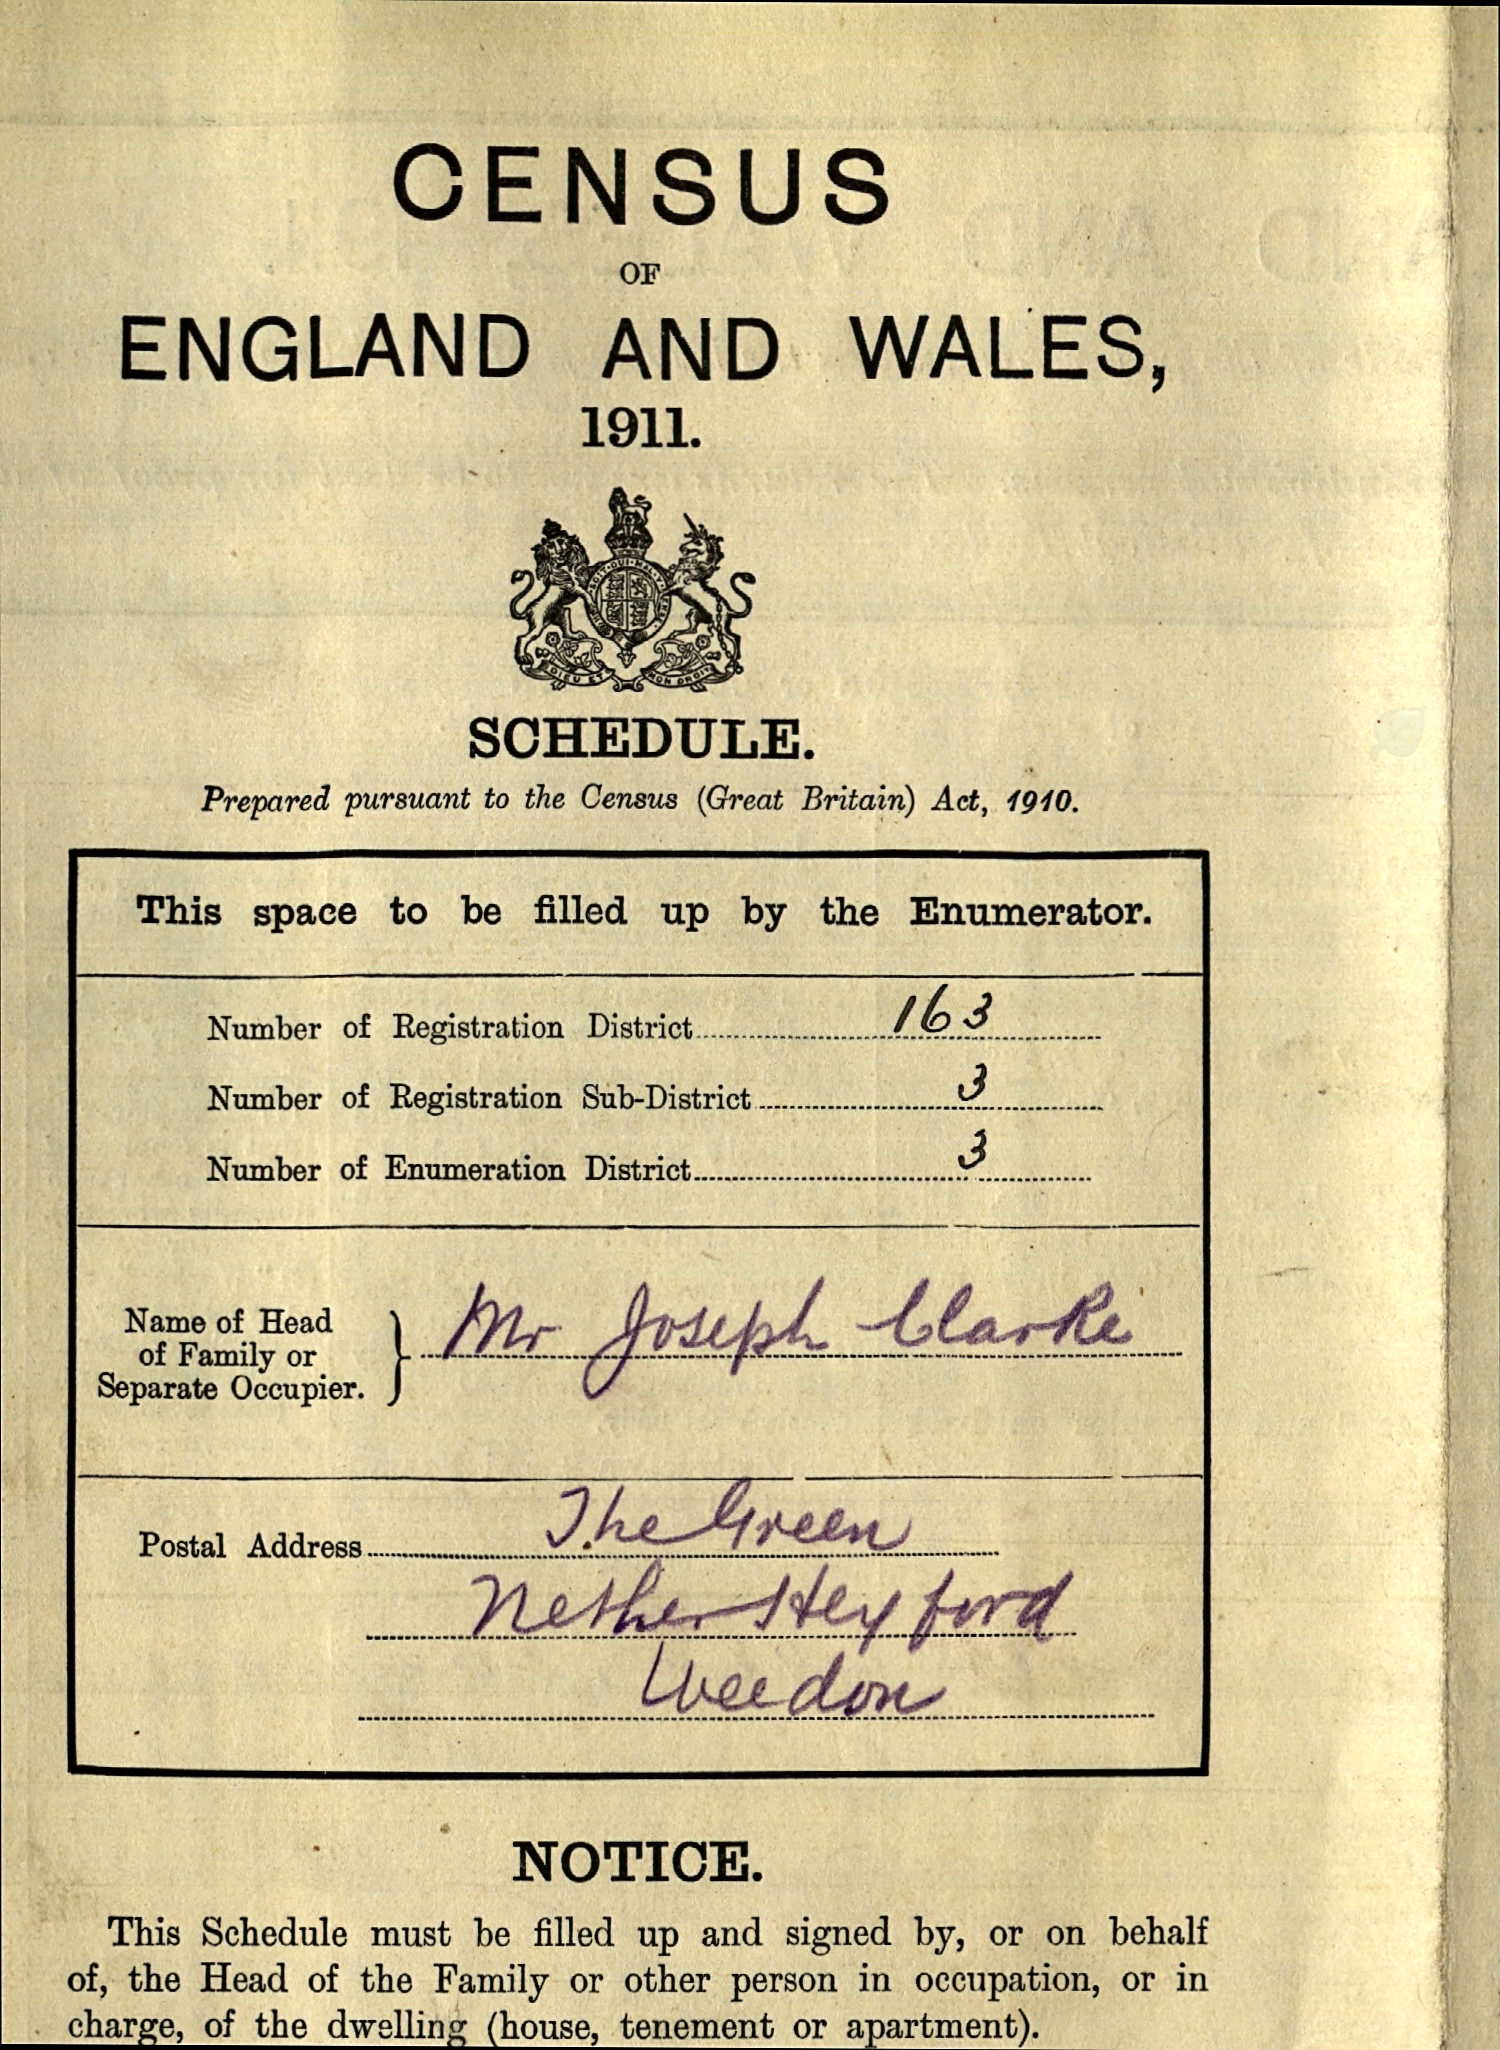 CENSUS
OF
ENGLAND AND WALES,
1911.
HONI SOIT QUI MAL Y PENSE
DIEU ET MON DROIT
SCHEDULE.
Prepared pursuant to the Census (Great Britain) Act, 1910.
This space to be filled up by the Enumerator.
Number of Registration District 163
Number of Registration Sub-District 3
Number of Enumeration District 3
Name of Head
of Family or
Separate Occupier. } Mr Joseph Clarke
Postal Address The Green
Nether Heyford
Weedon
NOTICE.
This Schedule must be filled up and signed by, or on behalf
of, the Head of the Family or other person in occupation, or in
charge, of the dwelling (house, tenement or apartment).